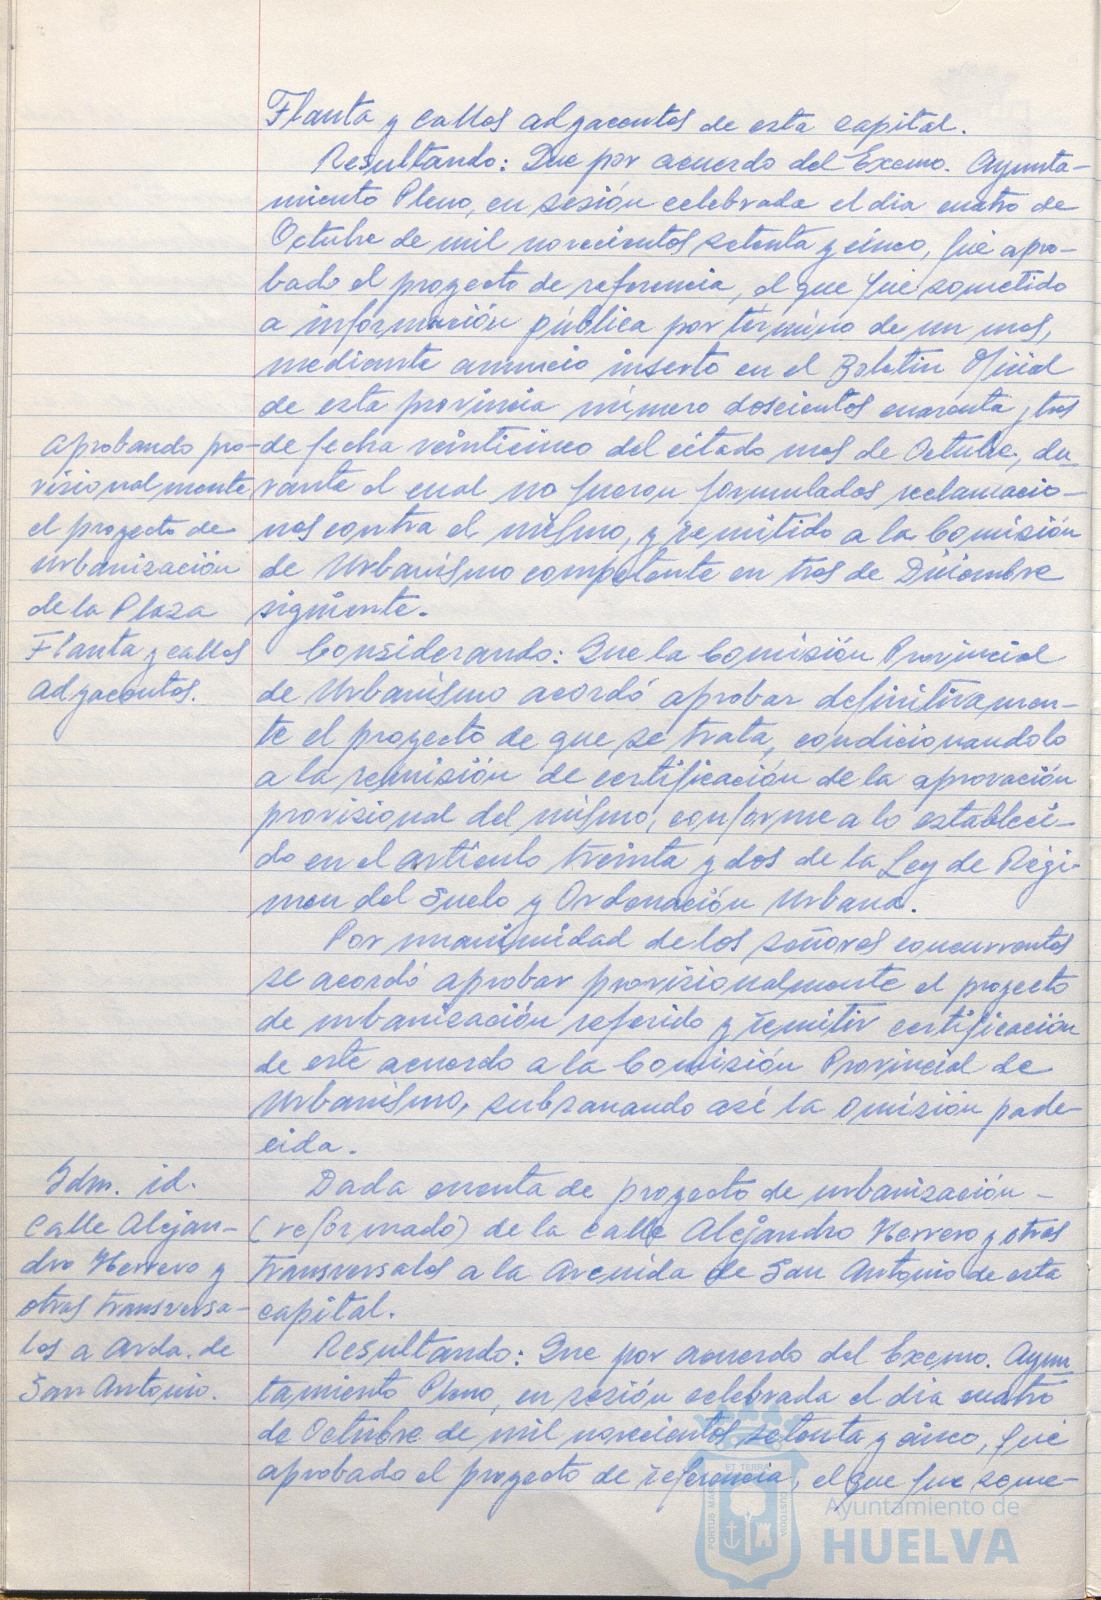 Flanta y calles adyacentes de esta capital.
Resultando: Que por acuerdo del Excmo. Ayunta-
miento Pleno, en sesión celebrada el dia cuatro de
Octubre de mil novecientos setenta y cinco, fué apro-
bado el proyecto de referencia, el que fué sometido
a información pública por término de un mes,
mediante anuncio inserto en el Boletin Oficial
de esta provincia número doscientos cuarenta y tres
de fecha veinticinco del citado mes de Octubre, du-
rante el cual no fueron formulados reclamacio-
nes contra el mismo, y remitido a la Comisión
de Urbanismo competente en tres de Diciembre
siguiente.
Aprobando pro-
visionalmente
el proyecto de
urbanización
de la Plaza
Flanta y calles
adyacentes.
Considerando: Que la Comisión Provincial
de Urbanismo acordó aprobar definitivamen-
te el proyecto de que se trata, condicionandolo
a la remisión de certificación de la aprovación
provisional del mismo, conforme a lo estableci-
do en el artículo treinta y dos de la Ley de Régi-
men del Suelo y Ordenación Urbana.
Por unanimidad de los señores concurrentes
se acordó aprobar provisionalmente el proyecto
de urbanicación referido y remitir certificación
de este acuerdo a la Comisión Provincial de
Urbanismo, subsanando así la omisión pade-
cida.
Idm. id.
Calle Alejan-
dro Herrero y
otras transversa-
les a Avda. de
San Antonio.
Dada cuenta de proyecto de urbanización -
(reformado) de la calle Alejandro Herrero y otras
transversales a la Avenida de San Antonio de esta
capital.
Resultando: Que por acuerdo del Excmo. Ayun
tamiento Pleno, en sesión celebrada el dia cuatro
de Octubre de mil novecientos setenta y cinco, fué
aprobado el proyecto de referencia, el que fue some-
ET TERRA
PORTUS MARIS
CUSTODIA
Ayuntamiento de
HUELVA